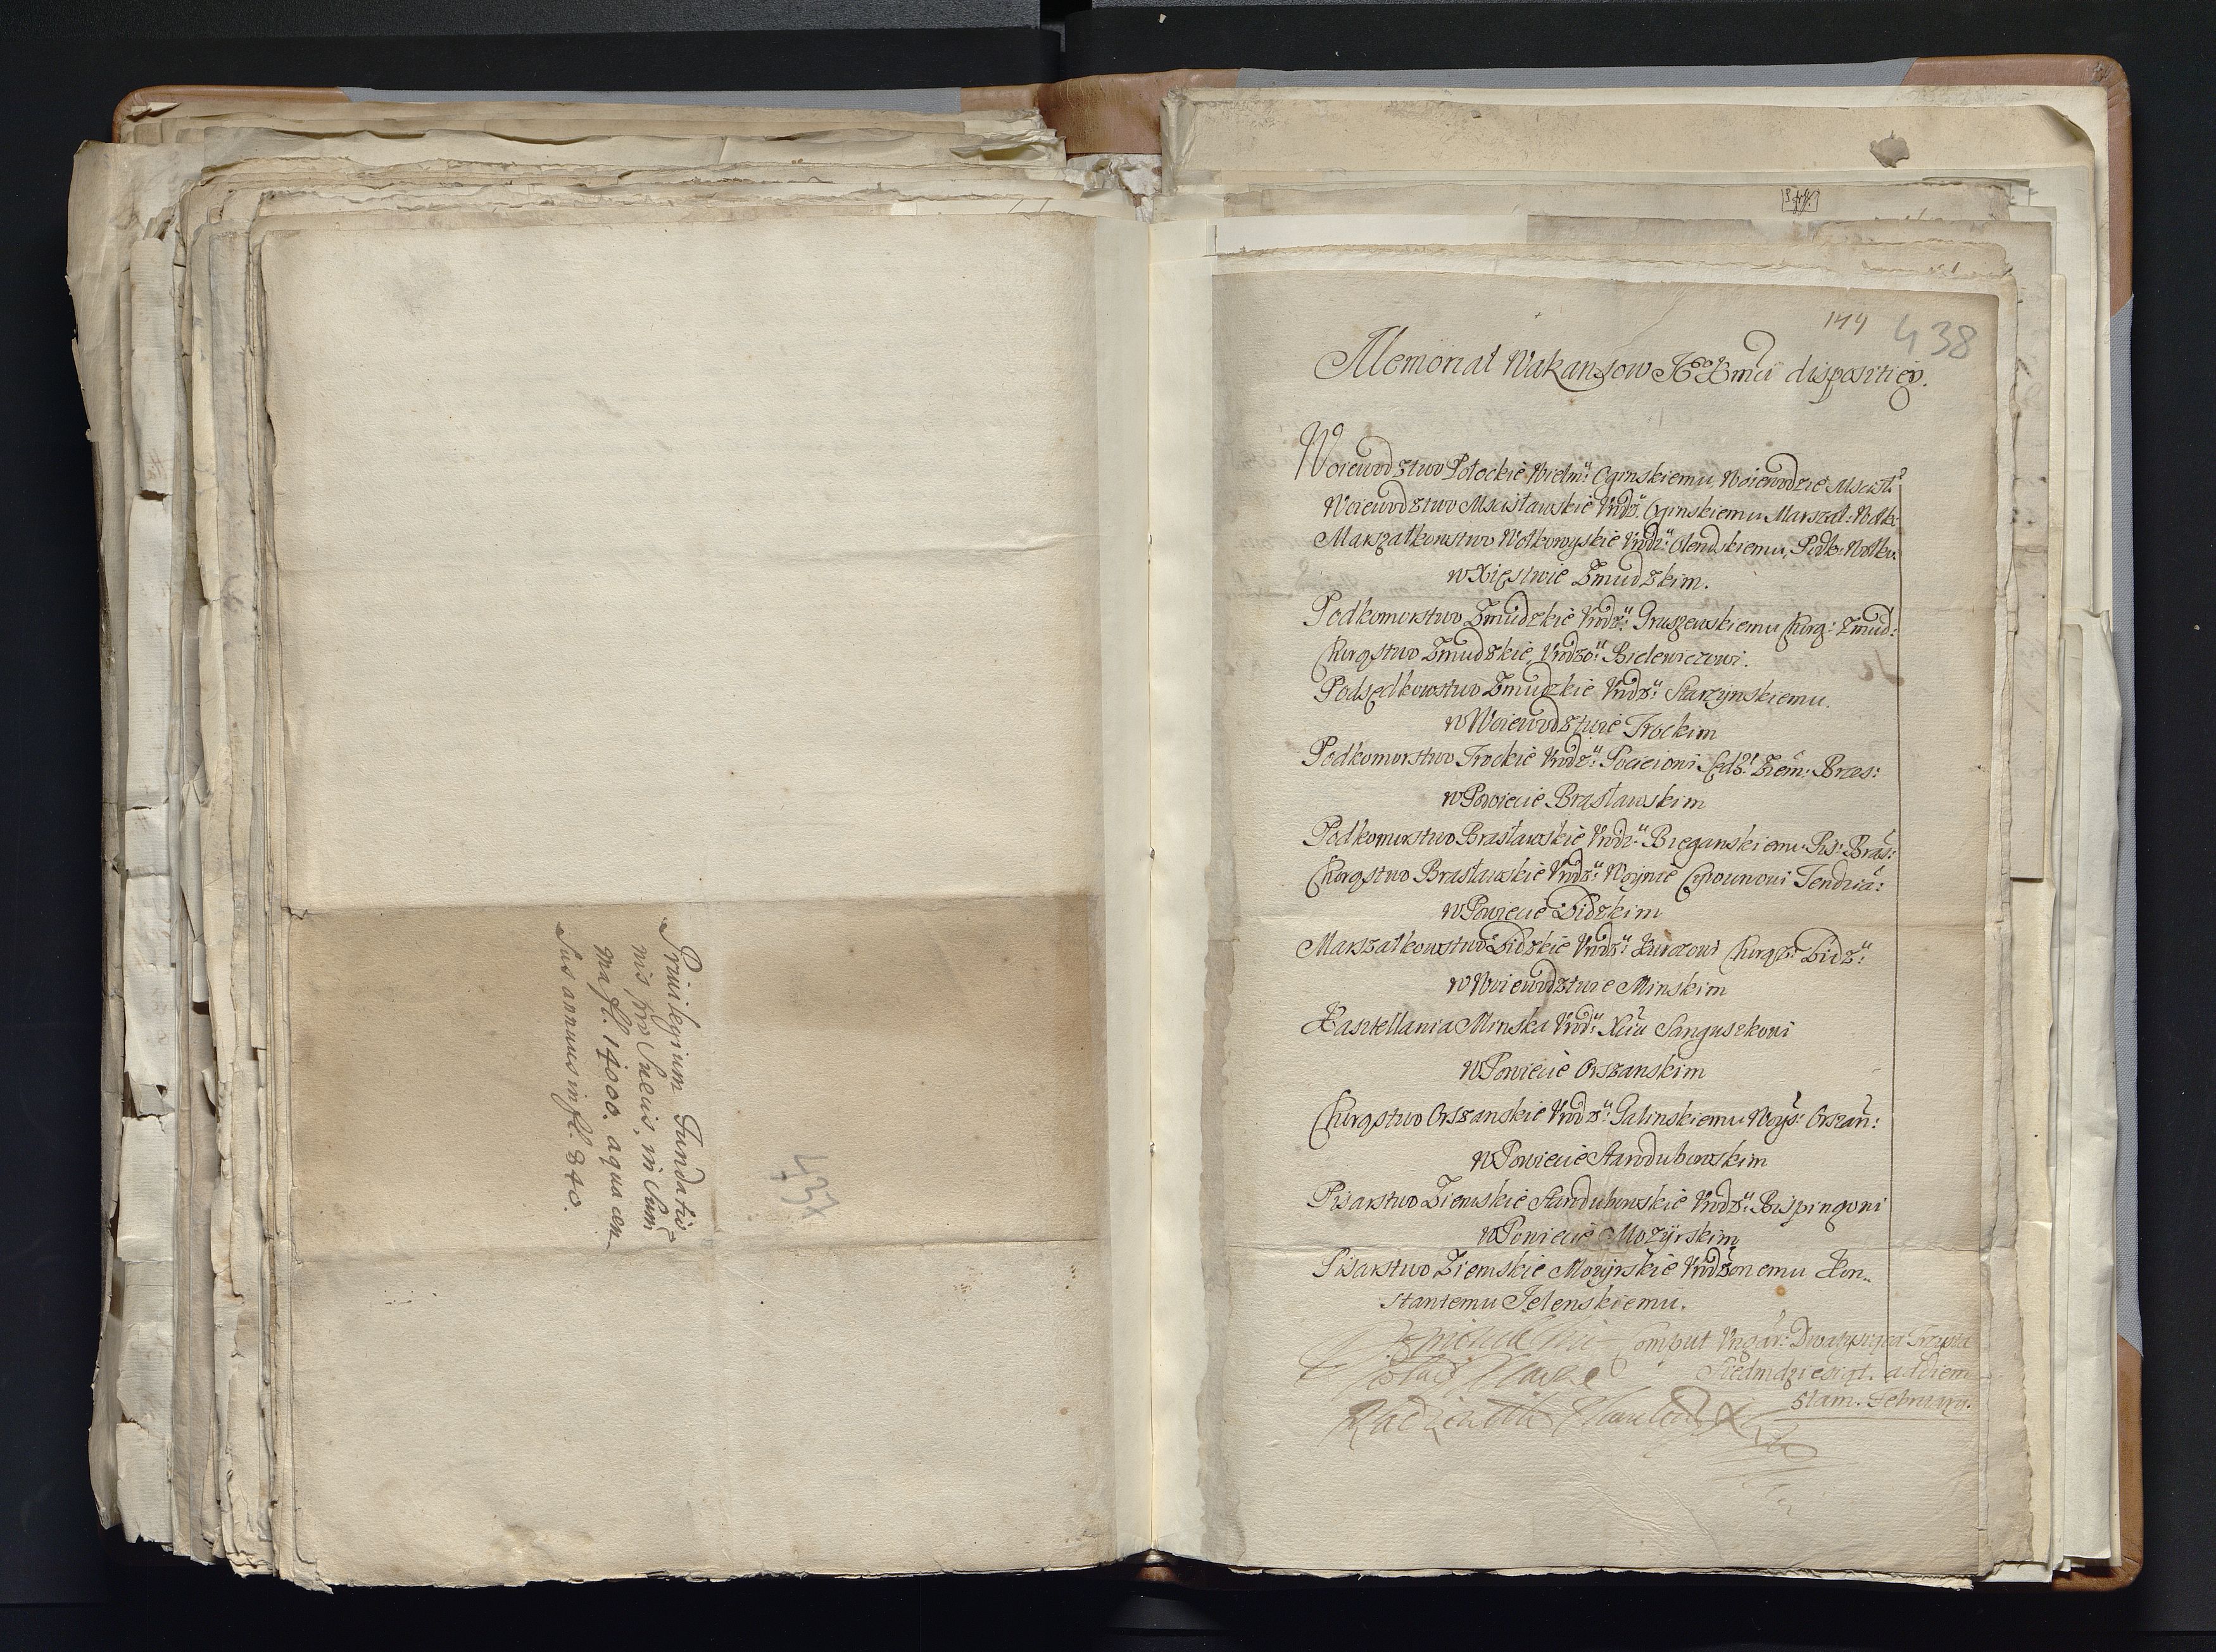 Privilegium Fundatio-
nis pro Suecis, in Sum
ma fl. 14000. a qua cen-
sus annuus in fl. 840.
437
144 438
Memoriał Wakansow dispositiey.
Woiewodztwo Połockie Wielm: Oginskiemu, Woiewodzie Mscisł:
Woiewodztwo Mscisławskie Urodz: Oginskiemu Marszał: Wołk:
Marszałkowstwo Wołkowyskie Urodz: Olendskiemu, Podk: Wołko:
w Xięstwie Zmudzkim.
Podkomorstwo Zmudzkie Urodz: Gruszewskiemu Chorą: Zmud:
Chorąstwo Zmudzkie, Urodzo: Bielewiczowi.
Podsędkowstwo Zmudzkie Urodz: Starzynskiemu.
w Woiewodztwie Trockim
Podkomorstwo Trockie Urodz: Pocieiowi Sędz: Ziem: Brzes:
w Powiecie Brasławskim
Podkomorstwo Brasławskie Urodz: Bieganskiemu Pis: Bras:
Chorąstwo Brasławskie Urodz: Woynie Cywounowi Tendzia:
w Powiecie Lidzkim
Marszałkowstwo Lidzkie Urodz: Kurczowi Chorąz: Lidz:
w Woiewodztwie Minskim
Kasztellania Minska Urod: Xciu Sanguszkowi
w Powiecie Orszanskim
Chorąstwo Orszanskie Urodz: Galinskiemu Woys: Orszan:
w Powiecie Starodubowskim
Pisarstwo Ziemskie Starodubowskie Urodz: Bispingowi
w Powiecie Mozyrskim
Pisarstwo Ziemskie Mozyrskie Urodzonemu Kon-
stantemu Jelenskiemu.
Komput Ungar: Dwa tysiąca Trzysta
Siedmdziesiąt. ad diem
51am. February.